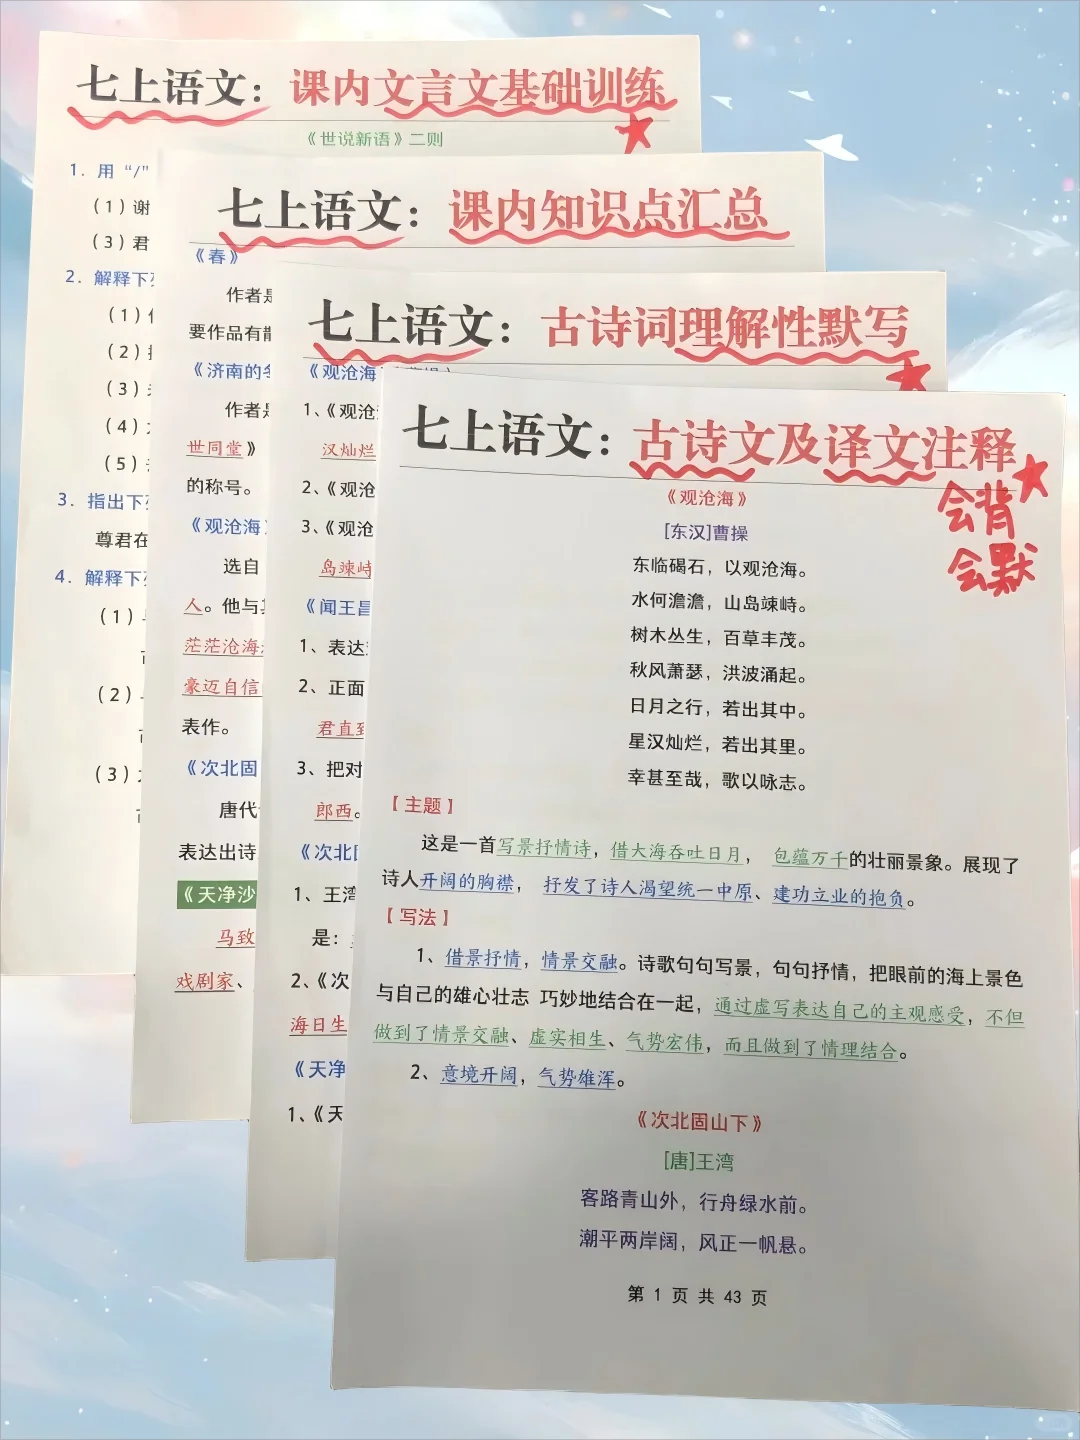 七上语文：课内文言文基础训练
《世说新语》二则
1. 用 “/”
（1）谢
（3）君
2. 解释下
（1）
（2）
（3）
（4）
（5）
3. 指出下
尊君在
4. 解释下
（1）
（2）
（3）
七上语文：课内知识点汇总
《春》
作者是
要作品有散
《济南的冬
作者是
世同堂》
的称号。
《观沧海
选自
人。他与其
茫茫沧海
豪迈自信
表作。
《次北固
唐代
表达出诗
《天净沙
马致
戏剧家、
七上语文：古诗词理解性默写
《观沧海
1、《观沧
汉灿烂
2、《观沧
3、《观沧
岛竦峙
《闻王昌
1、表达
2、正面
君直到
3、把对
郎西。
《次北固
1、王湾
是：
2、《次
海日生
《天净
1、《天
七上语文：古诗文及译文注释
会背
会默
《观沧海》
[东汉]曹操
东临碣石，以观沧海。
水何澹澹，山岛竦峙。
树木丛生，百草丰茂。
秋风萧瑟，洪波涌起。
日月之行，若出其中。
星汉灿烂，若出其里。
幸甚至哉，歌以咏志。
【主题】
这是一首写景抒情诗，借大海吞吐日月， 包蕴万千的壮丽景象。展现了
诗人开阔的胸襟， 抒发了诗人渴望统一中原、建功立业的抱负。
【写法】
1、借景抒情，情景交融。诗歌句句写景，句句抒情，把眼前的海上景色
与自己的雄心壮志 巧妙地结合在一起，通过虚写表达自己的主观感受，不但
做到了情景交融、虚实相生、气势宏伟，而且做到了情理结合。
2、意境开阔，气势雄浑。
《次北固山下》
[唐]王湾
客路青山外，行舟绿水前。
潮平两岸阔，风正一帆悬。
第 1 页 共 43 页